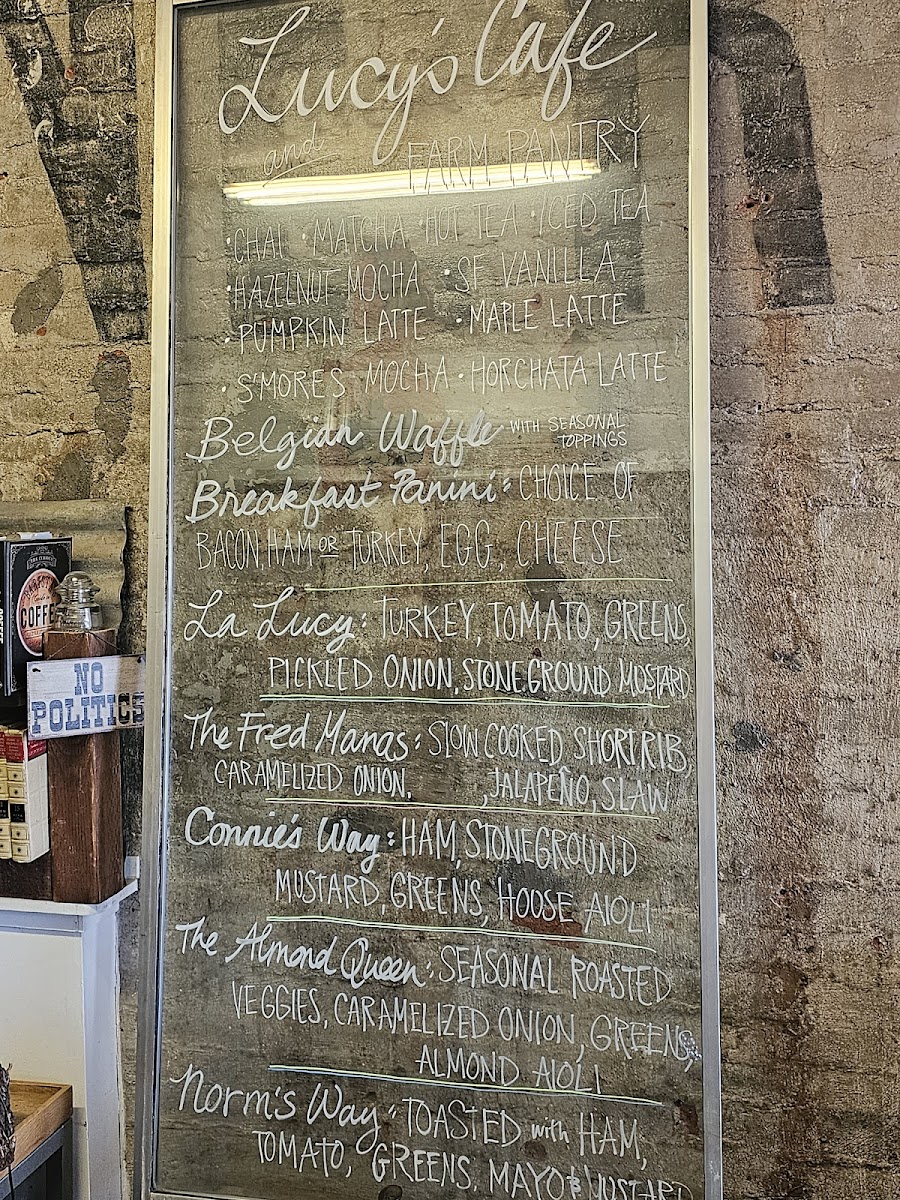 Lucy's Cafe
and FARM PANTRY
• CHAI • MATCHA • HOT TEA • ICED TEA
• HAZELNUT MOCHA • SF VANILLA
• PUMPKIN LATTE • MAPLE LATTE
• S'MORES MOCHA • HORCHATA LATTE
Belgian Waffle WITH SEASONAL
TOPPINGS
Breakfast Panini: CHOICE OF
BACON, HAM OR TURKEY, EGG, CHEESE
La Lucy: TURKEY, TOMATO, GREENS,
PICKLED ONION, STONEGROUND MUSTARD
The Fred Manas: SLOW COOKED SHORTRIB,
CARAMELIZED ONION, , JALAPEÑO, SLAW
Connie's Way: HAM, STONEGROUND
MUSTARD, GREENS, HOUSE AIOLI
The Almond Queen: SEASONAL ROASTED
VEGGIES, CARAMELIZED ONION, GREENS,
ALMOND AIOLI
Norm's Way: TOASTED with HAM,
TOMATO, GREENS, MAYO & MUSTARD
COFFEE
NO
POLITICS